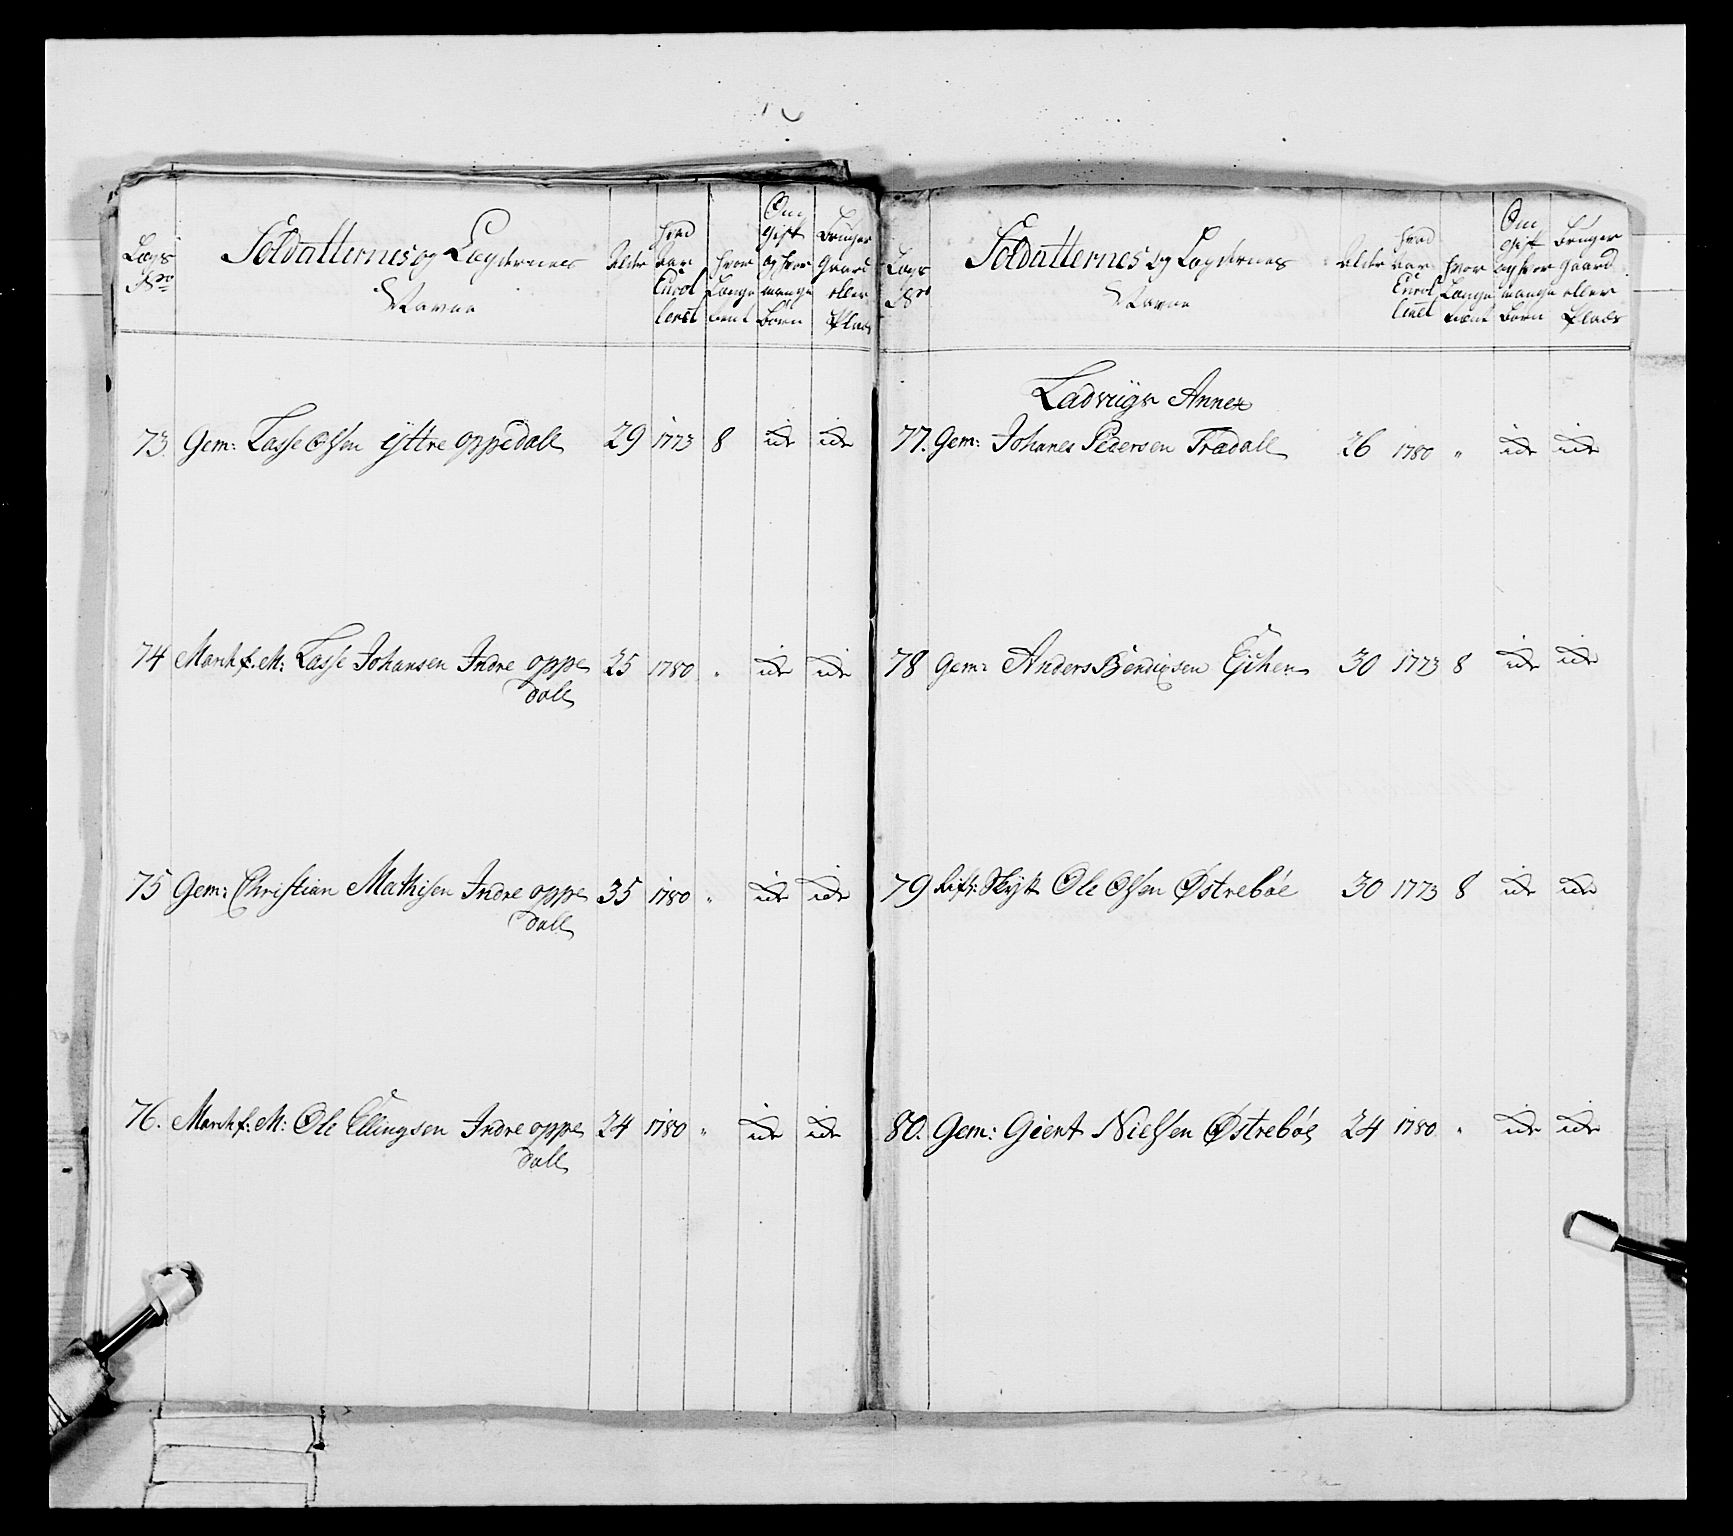 Lægs Nro
Soldatternes og Lægdernes Navne
Alder
hvad Aar Enrol leret
hvor Længe tient
Om gift og hvor mange Børn
Bruger Gaard eller Plads
73. Gem: Lasse Olsen Yttre Oppedall 29 1773 8 ide ide
74 Marchf. M: Lasse Johansen Indre Oppe 25 1780 " ide ide
dall
75 Gem: Christian Mathisen Indre Oppe 35 1780 " ide ide
dall
76. Marchf: M: Ole Ellingsen Indre Oppe 24 1780 " ide ide
dall
Lægs Nro
Soldatternes og Lægdernes Navne
Alder
hvad Aar Enrol leret
hvor Længe tient
Om gift og hvor mange Børn
Bruger Gaard eller Plads
Ladviigs Annex
77. Gem: Johanes Pedersen Trædall 26 1780 " ide ide
78 Gem: Anders Bendixen 30 1773 8 ide ide
79 Ole Olsen Østrebøe 30 1773 8 ide ide
80. Gem: Gient Nielsen Østrebøe 24 1780 " ide ide